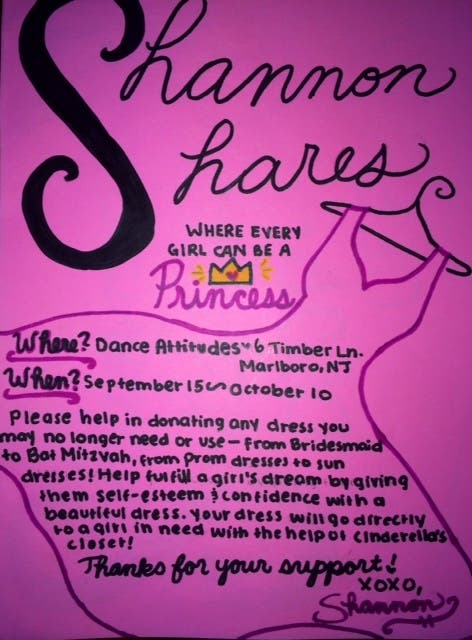 Shannon
Shares
WHERE EVERY
GIRL CAN BE A
Princess
Where? Dance Attitudes 6 Timber Ln.
Marlboro, NJ
When? September 15 ~ October 10
Please help in donating any dress you
may no longer need or use - from Bridesmaid
to Bat Mitzvah, from Prom dresses to sun
dresses! Help fulfill a girl's dream by giving
them self-esteem & confidence with a
beautiful dress. Your dress will go directly
to a girl in need with the help of Cinderella's
closet!
Thanks for your support!
XOXO,
Shannon